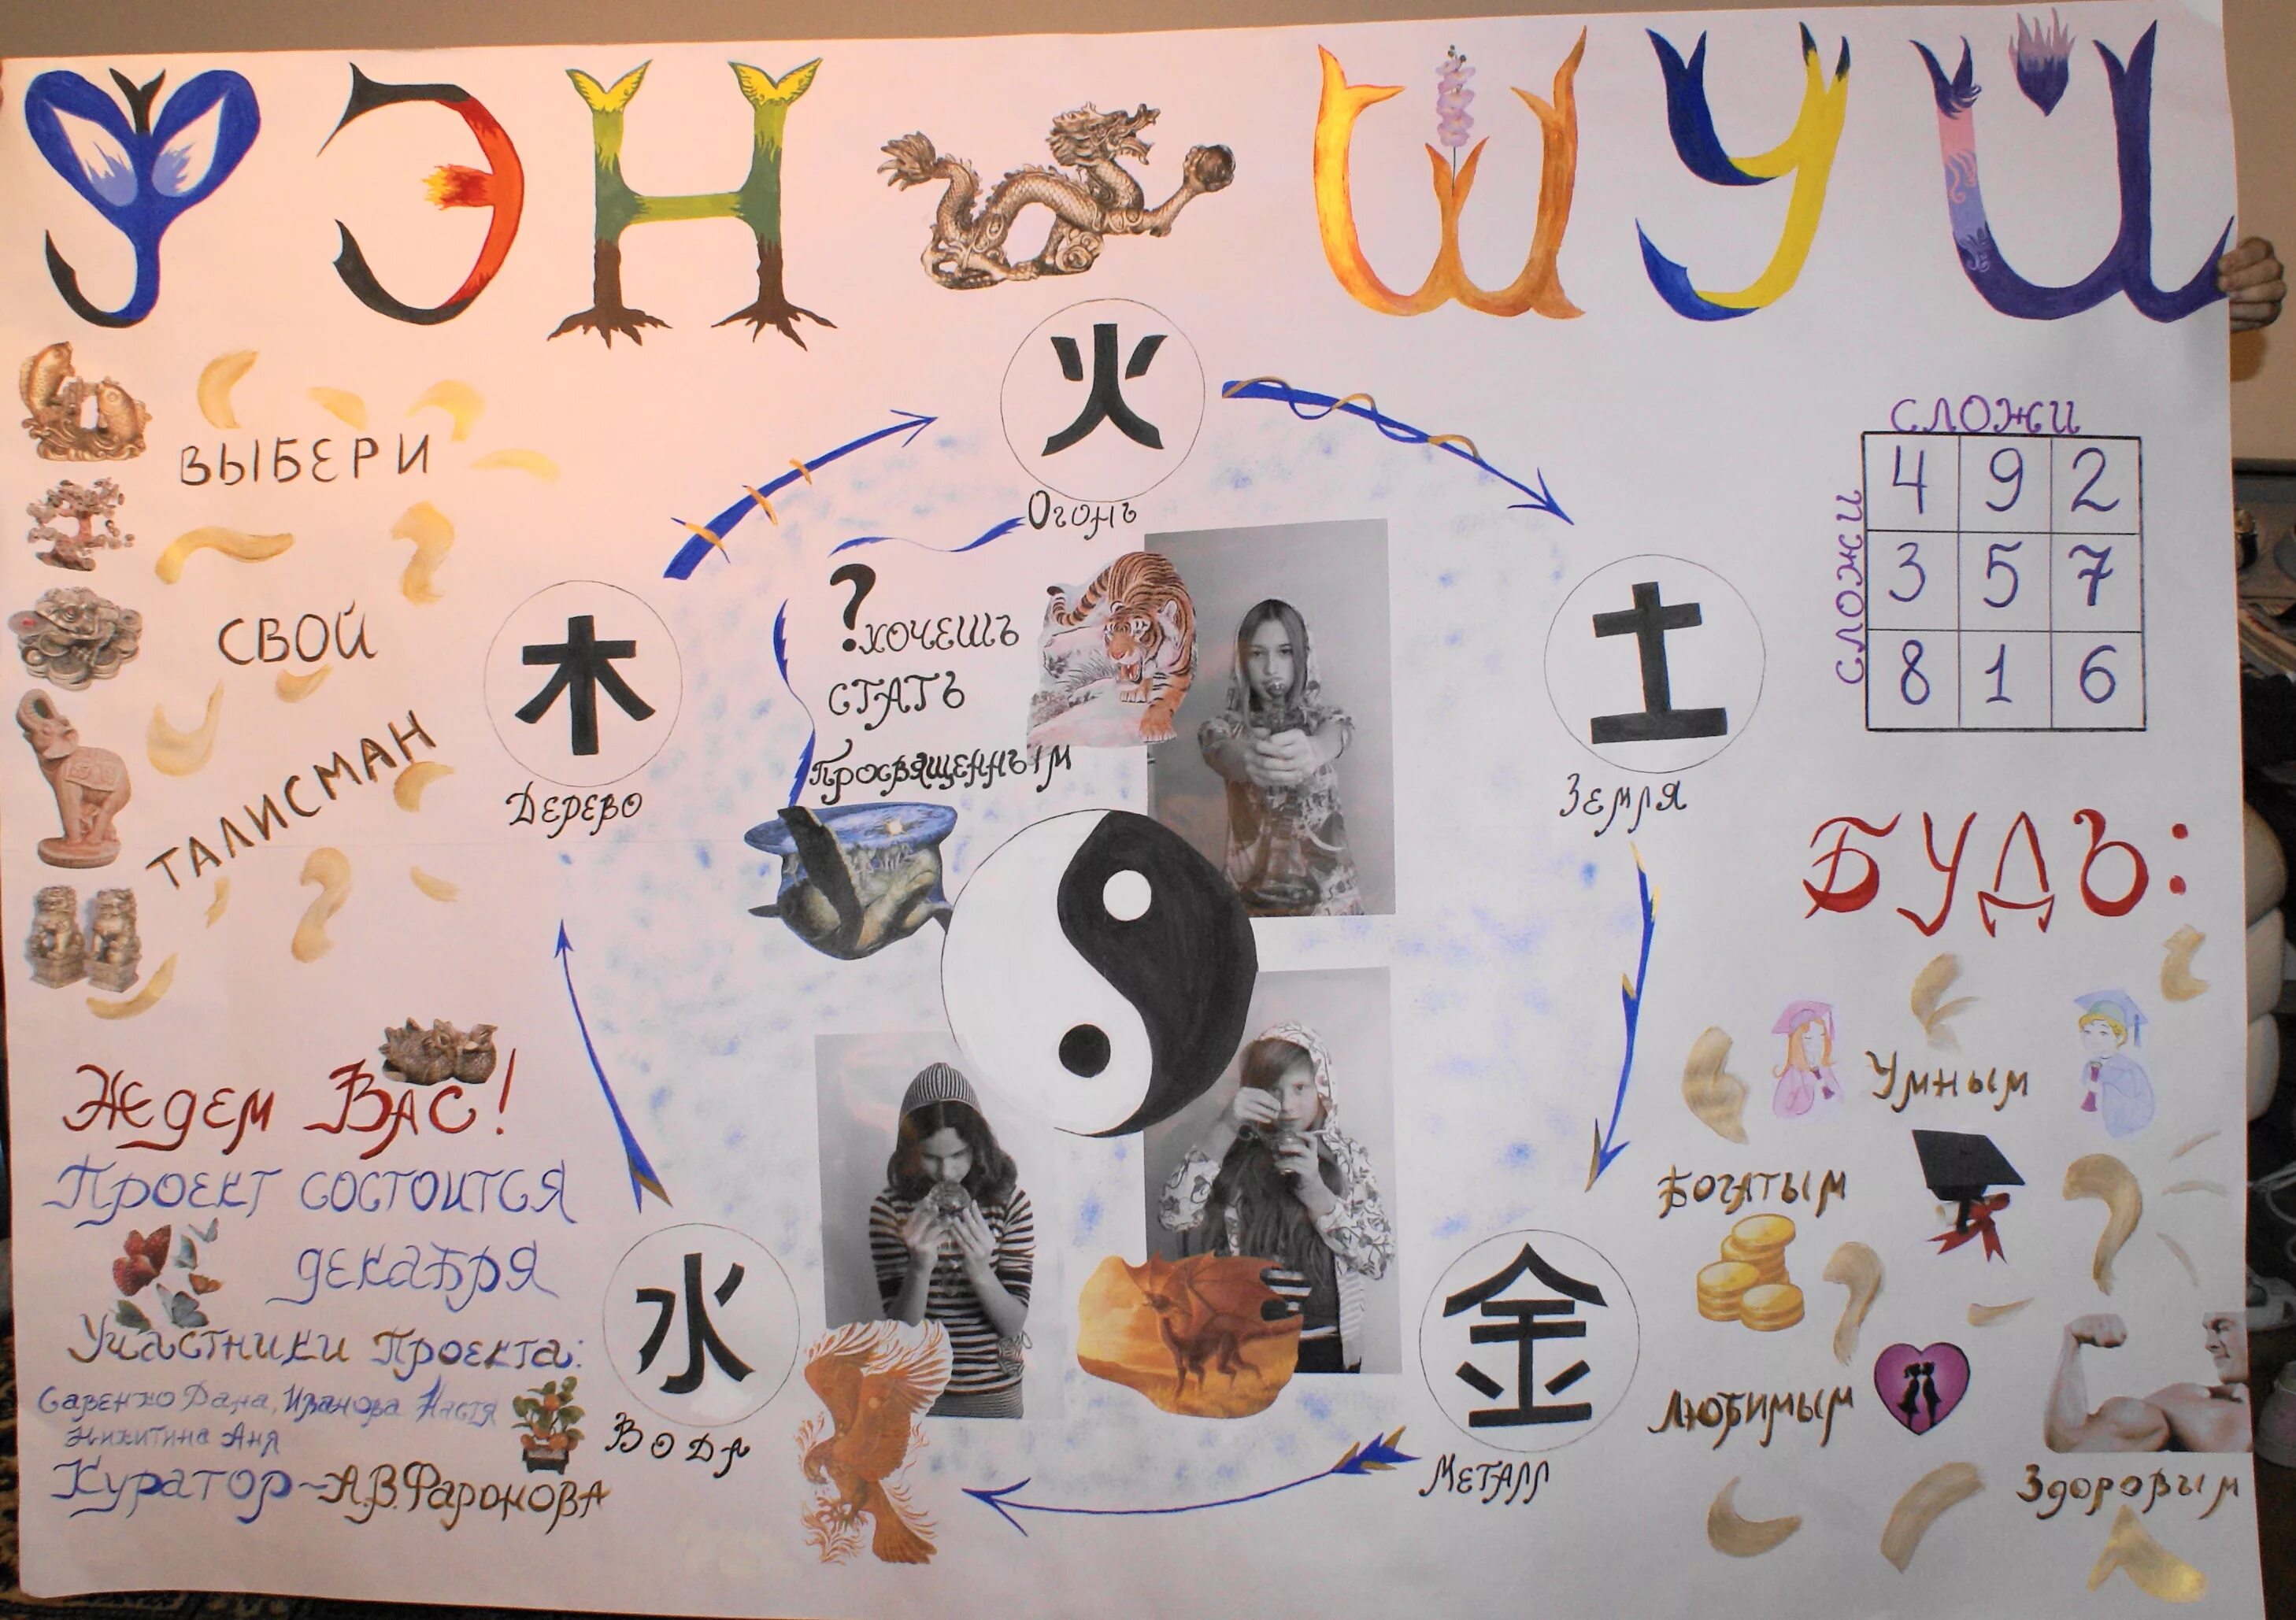 ФЭН ШУЙ
ВЫБЕРИ
СВОЙ
ТАЛИСМАН
火
Огонь
木
Дерево
土
Земля
金
Металл
水
Вода
?хочешь
стать
Просвященным
СЛОЖИ
СЛОЖИ
4 9 2
3 5 7
8 1 6
БУДЬ:
Умным
Богатым
Любимым
Здоровым
Ждем Вас!
Проект состоится
декабря
Участники Проекта:
Савенко Дана, Иванова Настя
Никитина Аня
Куратор-А.В.Фаронова